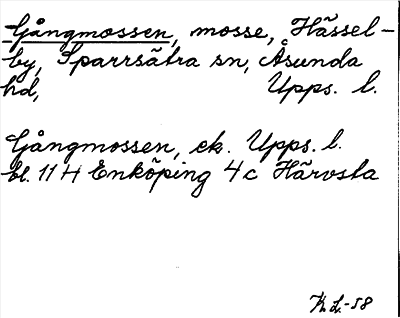 Gångmossen, mosse, Hässel-
by, Sparrsätra sn, Åsunda
hd, Upps. l.
Gångmossen, ek. Upps. l.
bl. 11 H Enköping 4c Härvsta
K.L.-58